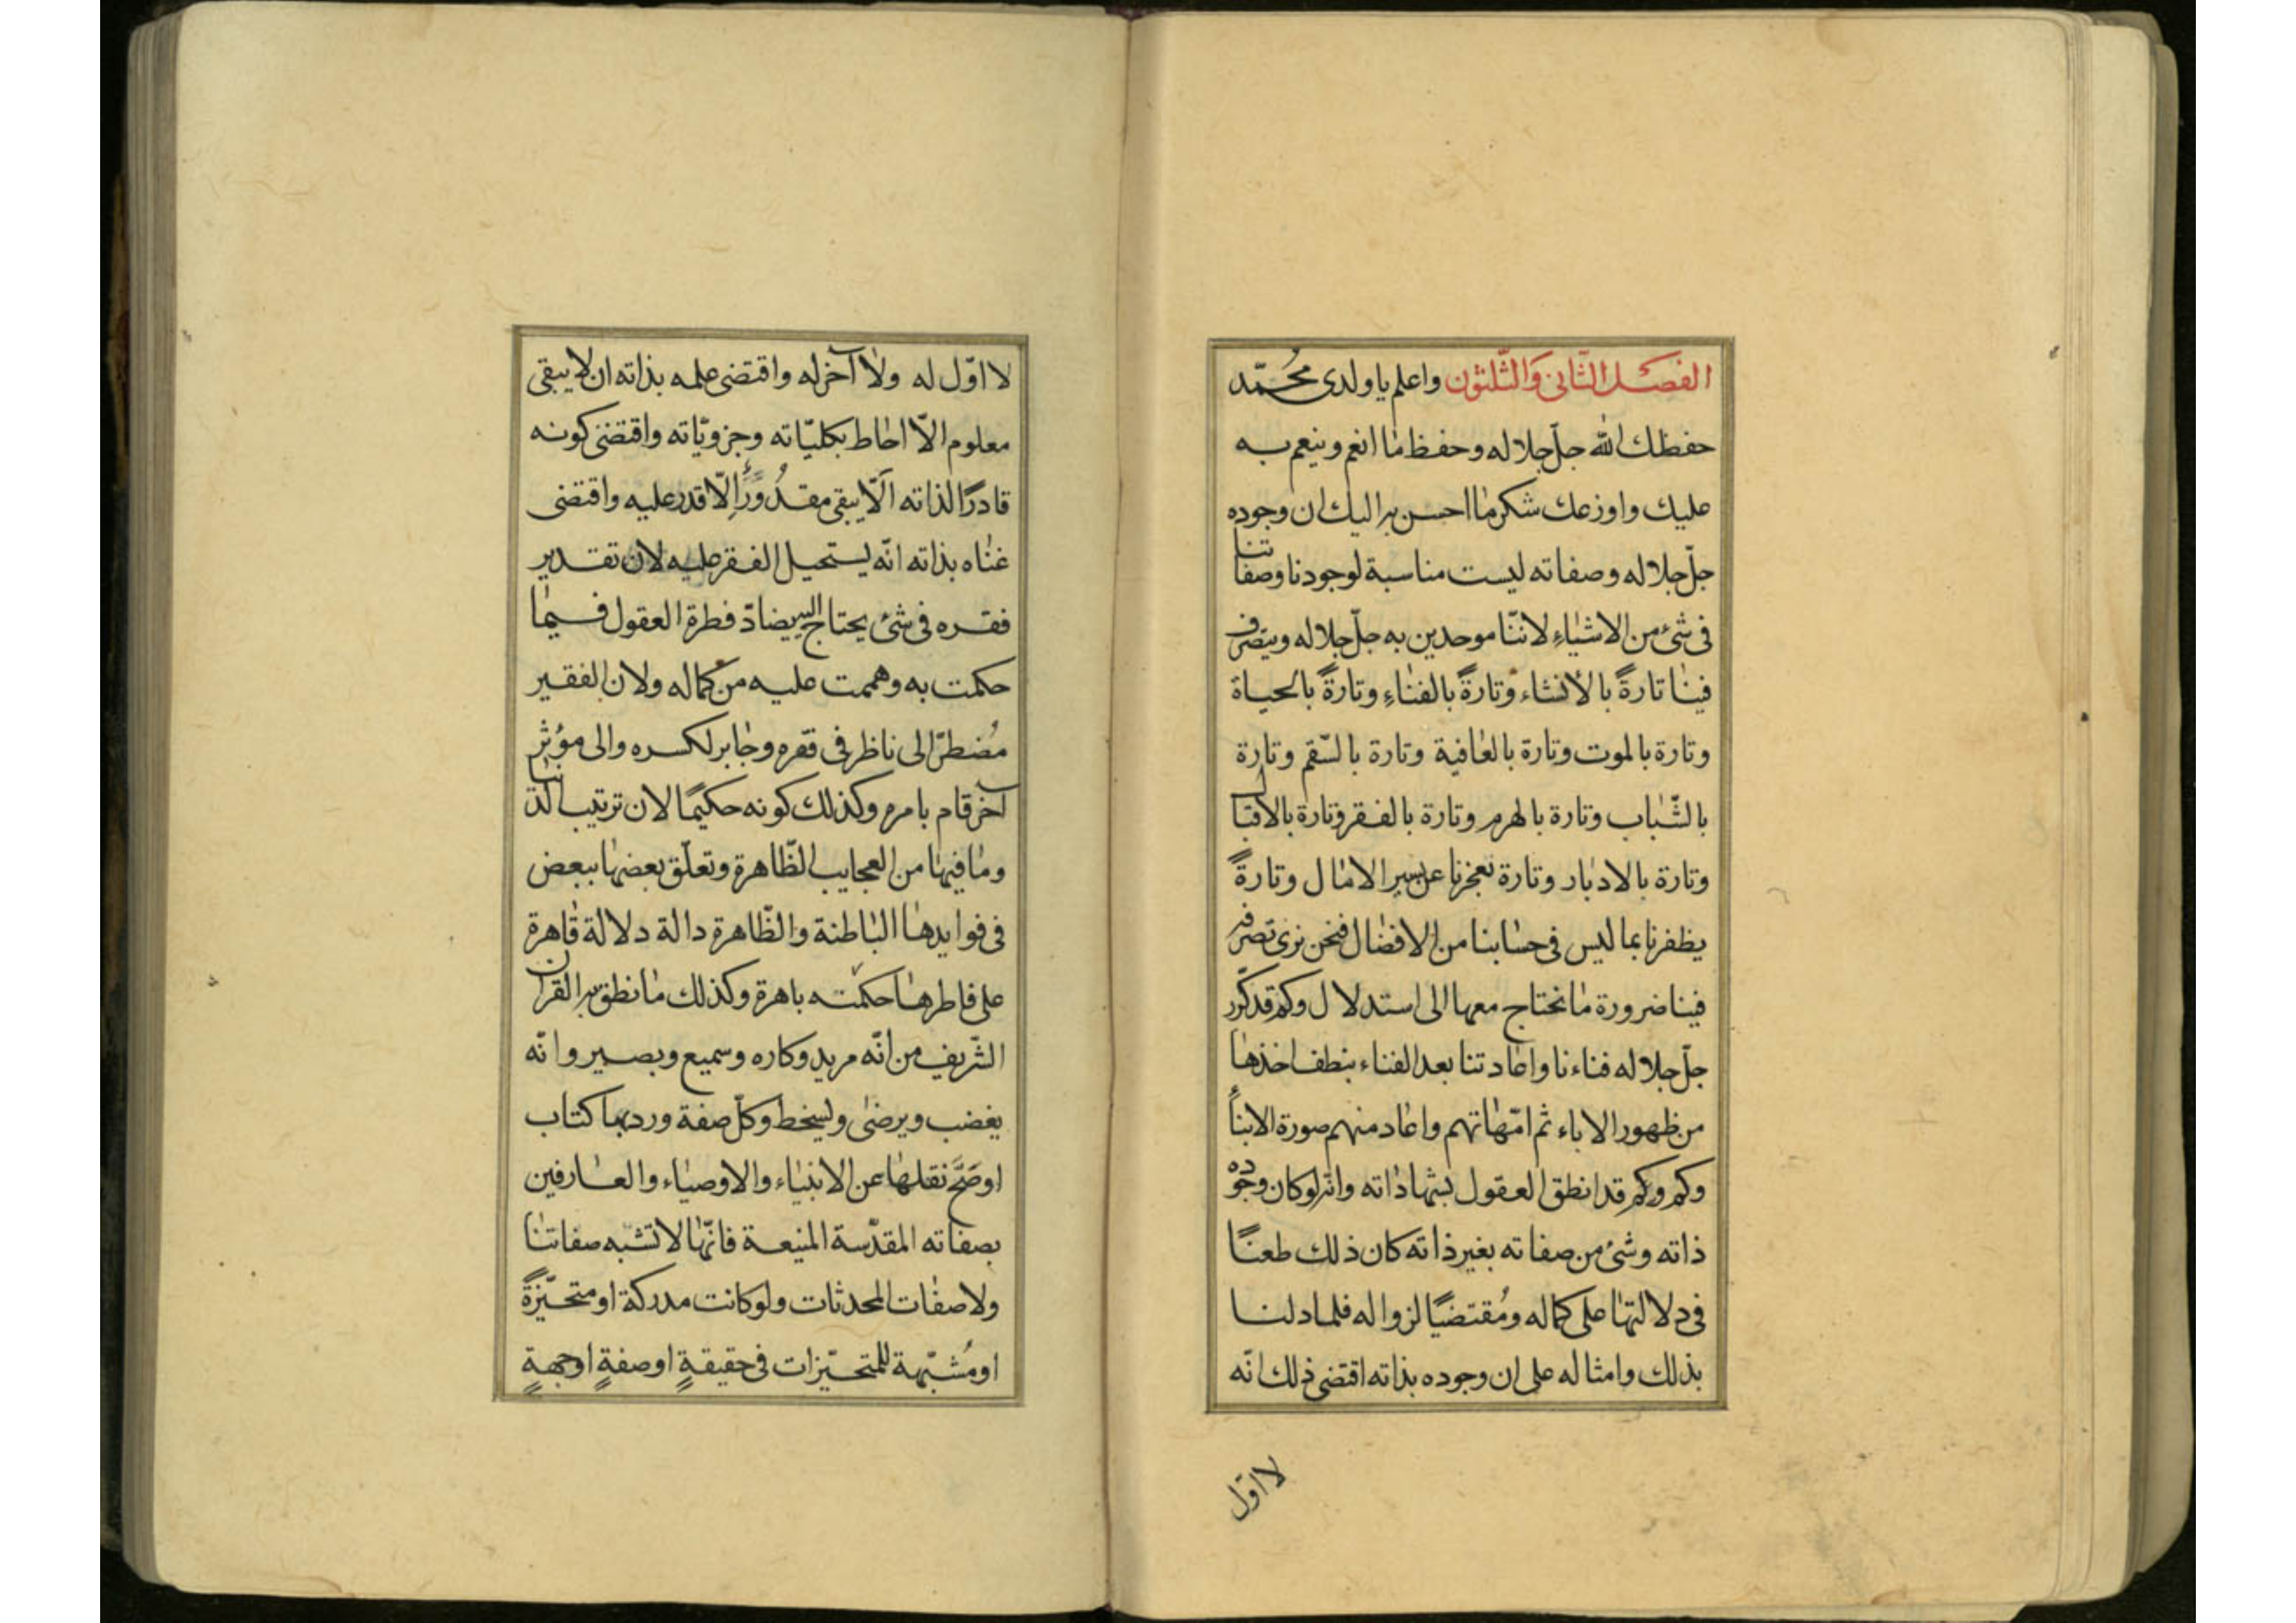 الفصل الثّانى وَالثّلثون واعلم يا ولدى محُمّد
حفظك الله جلّ جلاله وحفظ ما انعم وينعم به
عليك واوزعك شكر ما احسن به اليك ان وجوده
جلّ جلاله وصفاته ليست مناسبة لوجودنا وصفاتنا
فى شئ من الاشياءِ لاننّا موحدين به جلّ جلاله ويتصرف
فينا تارةً بالأنشاء وتارةً بالفناءِ وتارةً بالحياة
وتارة بالموت وتارة بالعافية وتارة بالسّقم وتارة
بالشّباب وتارة بالهرم وتارة بالفقر وتارة بالاقبال
وتارة بالادبار وتارة تعجزنا عن سير الامال وتارةً
يظفرنا بما ليس فى حسابنا من الافضال فنحن نرى تصرفه
فينا ضرورة ما نحتاج معها الى استدلال وكم قد كرّر
جلّ جلاله فناءنا واعادتنا بعد الفناء بنطف اخذها
من ظهور الاباء ثم امّهاتهم واعاد منهم صورة الابنأ
وكم وكم قد انطق العقول بشهاداته وانه لو كان وجوده
ذاته وشئ من صفاته بغير ذاته كان ذلك طعنًا
فى دلالتها على كماله ومُقتضيًا لزواله فلما دلنا
بذلك وامثاله على ان وجوده بذاته اقتضى ذلك انّه
لا اوّل
لا اوّل له ولا آخر له واقتضى علمه بذاته ان لا يبقى
معلوم الاّ احاط بكليّاته وجزويّاته واقتضى كونه
قادرًا لذاته الّا يبقى مقدُورًا إلّا قدر عليه واقتضى
غناه بذاته انّه يستحيل الفقر عليه لان تقدير
فقره فى شئ يحتاج اليه يضادّ فطرة العقول فيما
حكمت به وهممت عليه من كماله ولان الفقير
مُضطرّ الى ناظر فى فقره وجابر لكسره والى مؤثر
آخر قام بامره وكذلك كونه حكيمًا لان ترتيب الدنيا
وما فيها من العجايب الظّاهرة وتعلّق بعضها ببعض
فى فوايدها الباطنة والظّاهرة دالة دلالة قاهرة
على فاطرها حكمته باهرة وكذلك ما نطق به القران
الشّريف من انّه مريد وكاره وسميع وبصير وانّه
يغضب ويرضى ويسخط وكلّ صفة ورد بها كتاب
او صَحَّ نقلها عن الانبياء والاوصياء والعارفين
بصفاته المقدّسة المنيعة فانّها لا تشبه صفاتنا
ولا صفات المحدثات ولو كانت مدركة او متحيّزةً
او مُشبّهة للمتحيّزات فى حقيقةٍ او صفةٍ او جهةٍ